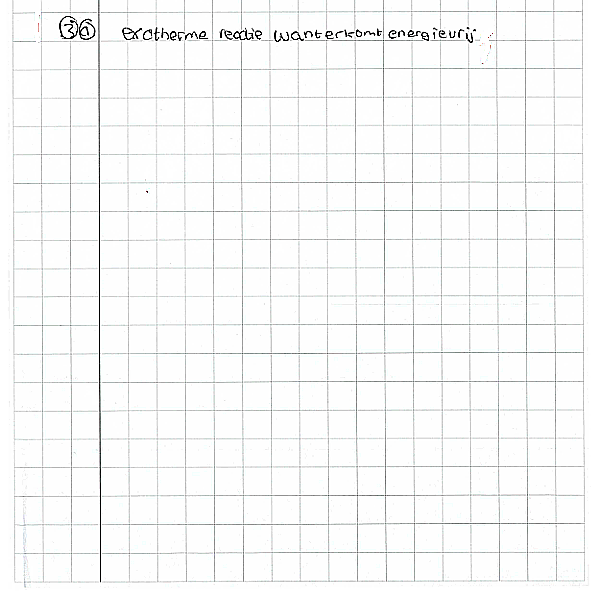 3a exotherme reactie want er komt energie vrij